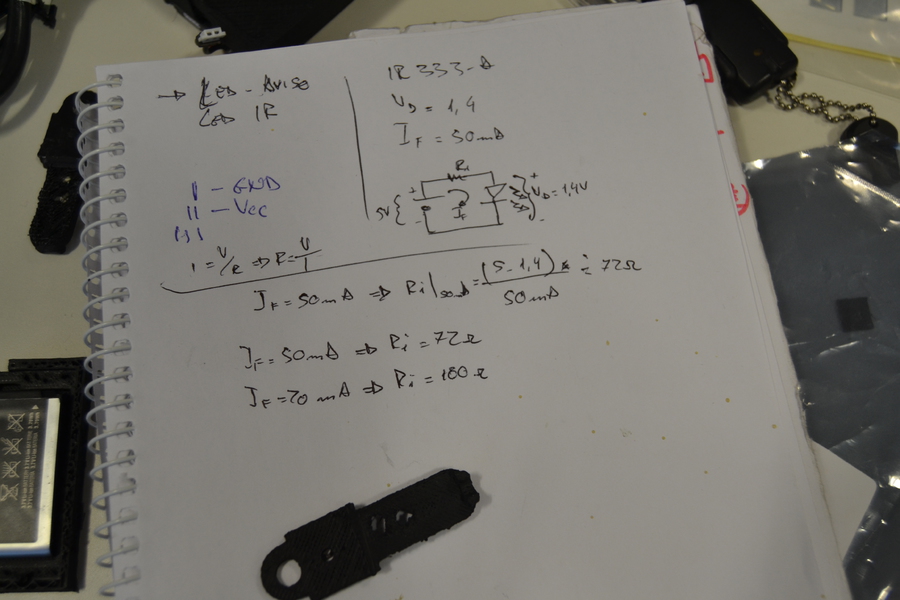 → LED - Aviso
LED IR
| - GND
|| - Vcc
|||
I = V/R ⇒ R = V/I
IR333-A
VD = 1,4
IF = 50mA
Ri
5V
+
-
IF
+
VD = 1,4V
-
IF = 50mA ⇒ Ri|50mA = (5-1,4) / 50mA = 72Ω
IF = 50mA ⇒ Ri = 72Ω
IF = 20mA ⇒ Ri = 180Ω